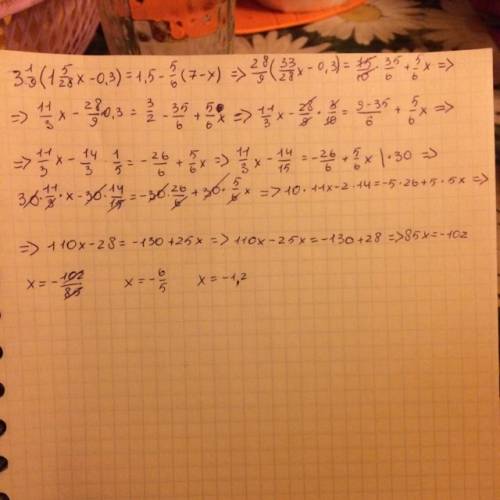 3 1/9 (1 5/28 x - 0,3) = 1,5 - 5/6 (7 - x) => 28/9 (33/28 x - 0,3) = 15/10 · 35/6 + 5/6 x =>
=> 11/3 x - 28/9 · 0,3 = 3/2 - 35/6 + 5/6 x => 11/3 x - 28/9 · 3/10 = (9-35)/6 + 5/6 x =>
=> 11/3 x - 14/3 · 1/5 = - 26/6 + 5/6 x => 11/3 x - 14/15 = - 26/6 + 5/6 x | · 30 =>
30 · 11/3 · x - 30 · 14/15 = - 30 · 26/6 + 30 · 5/6 x => 10 · 11x - 2 · 14 = -5 · 26 + 5 · 5x =>
=> 110x - 28 = -130 + 25x => 110x - 25x = -130 + 28 => 85x = -102
x = - 102/85 x = - 6/5 x = -1,2